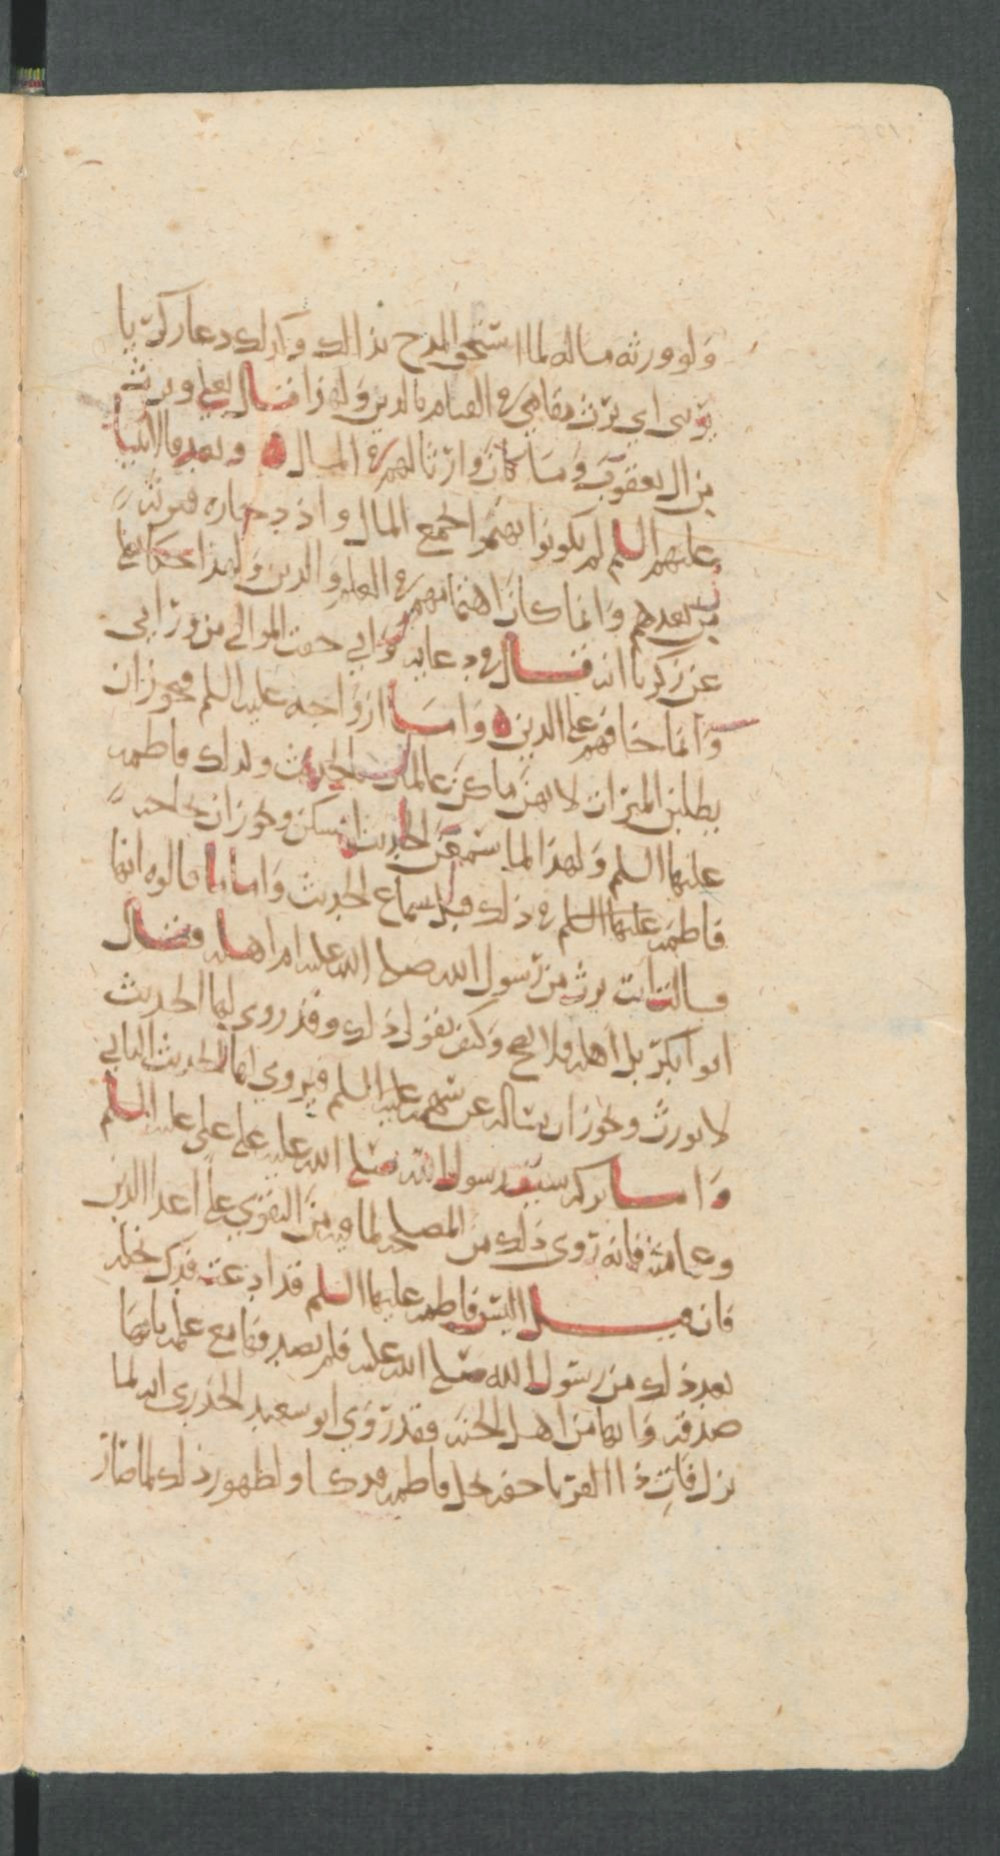 ولو ورثه ماله لما استحق المدح بذالك وكذلك دعا زكريا
يرثني اي يرث مقامي في القيام بالدين ولهذا قال تعلى ويرث
من ال يعقوب وما كان وارثا لهم في المال ٥ وبعد فالانبيا
عليهم السلم لم يكونوا يهتموا بجمع المال واذخاره فيورث
من بعدهم وانما كان اهتمامهم في العلم والدين ولهذا حكا تعلى
عن زكريا انه قال في دعايه واني خفت الموالي من وراىي
وانما خافهم على الدين ٥ واما ازواجه عليه السلم فيجوز ان
يطلبن الميراث لانهن ما كن عالمات بالحديث ولذلك فاطمه
عليها السلم ولهذا لما سمعن الحديث امسكن ويجوز ان تحاحه
فاطمه عليها السلم في ذلك قبل سماع الحديث واما ما قالوه انها
قالت انت ورثت رسول الله صلى الله عليه ام اهله فقال
ابوا بكر بل اهله فلا يصح وكيف يقول ذلك وقد روى لها الحديث
لا يورث ويجوز ان يساله عن سهمه عليه السلم فيروي لها الحديث الثاني
واما تركه سيف رسول الله صلى الله عليه على علي عليه السلم
وعمامته فانه روى ذلك من المصلحه لما فيه من التقوي على اعدا الدين
فان قيل اليس فاطمه عليها السلم قد ادعت فدك نحله
بعد ذلك من رسول الله صلى الله عليه فلم يصدقها مع علمه بانها
صدقه وانها من اهل الجنه وقد روى ابو سعيد الخدري انه لما
نزل فات ذا القربا حقه نحل فاطمه فدكا ولظهور ذلك لما صار